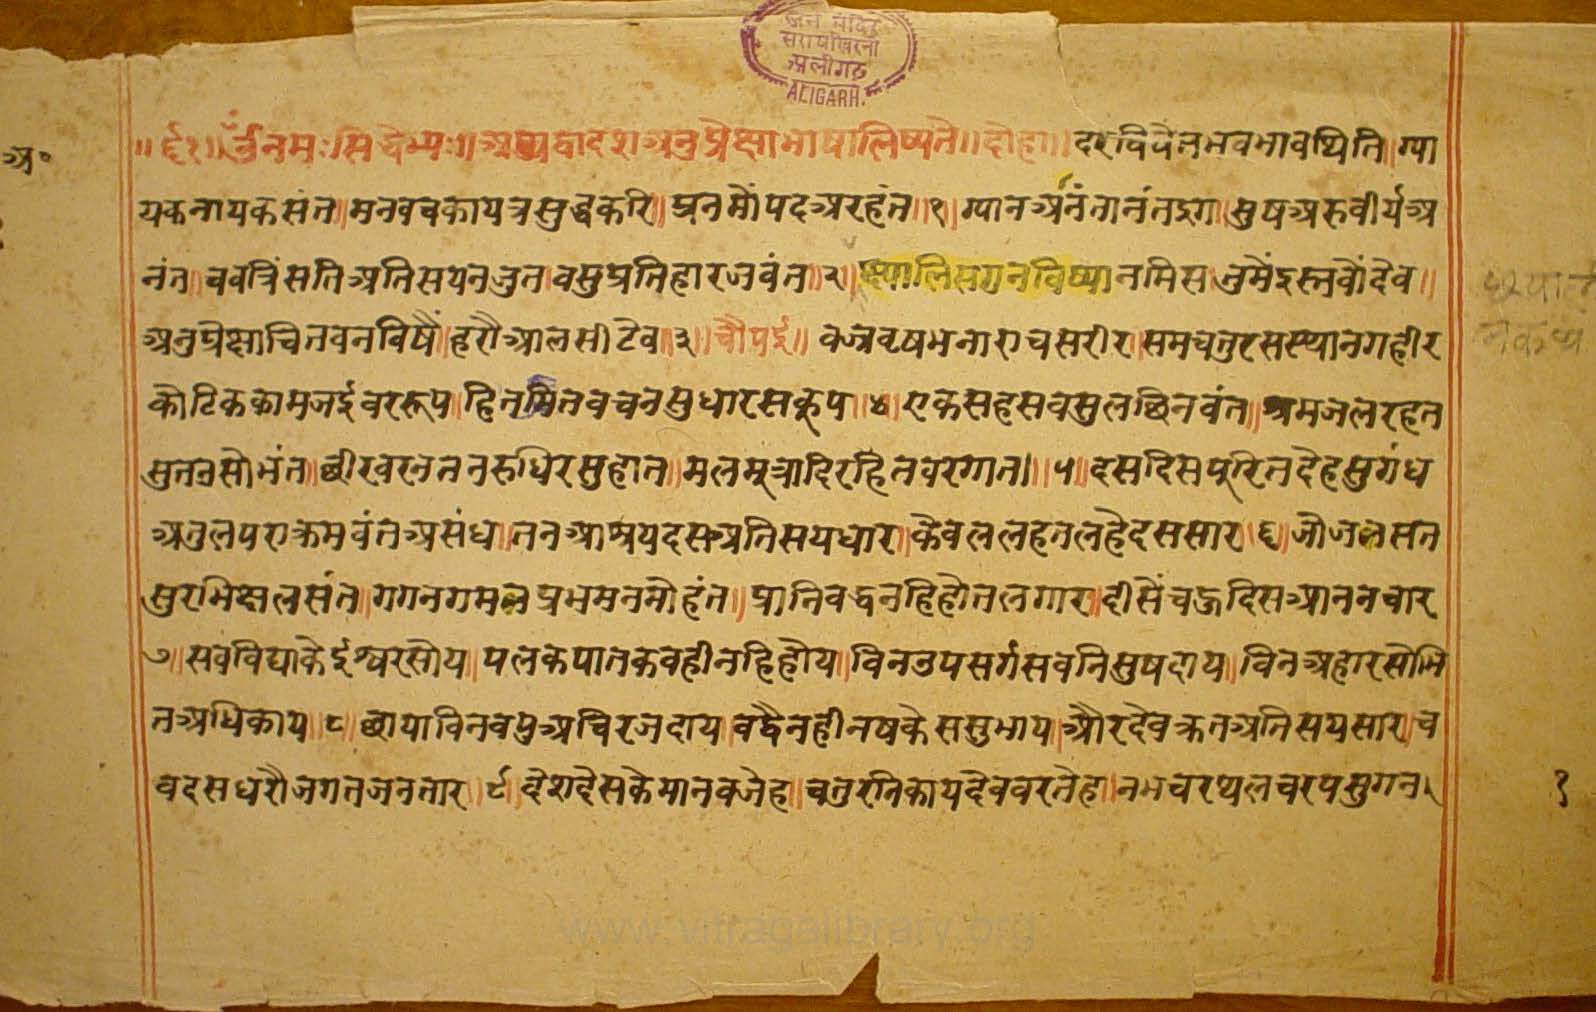 जैन मंदिर
सरायखिरनी
अलीगढ़
ALIGARH.
अ॰
॥ॐनमःसिद्धेभ्यः॥अथद्वादशअनुप्रेक्षाभाषालिष्यते॥दोहा॥ भवभावथिति॥ग्या
यकनायकसंत॥मनवचकायत्रसुद्धकरि॥प्रनमौंपदअरहंत॥१॥ग्यानअनंतानंतद्रग॥सुषअरुवीर्यअ
नंत॥ववत्रिंसतिअतिसयनजुत॥वसुप्रतिहारजवंत॥२॥ष्यालिसगनविष्यानमिस॥नुमैंइस्तवौंदेव॥
अनुप्रेक्षाचितवनविषैं॥हरौआलसीटेव॥३॥चौपई॥वज्रवृषभनाराचसरीर॥समचतुरसंस्थानगहीर
कोटिककामजईवररूप॥हितमितवचनसुधारसकूप॥४॥एकसहसवसुलछिनवंत॥श्रमजलरहत
सुतनसोभंत॥छीरवरनतनरुधिरसुहात॥मलमूत्रादिरहितवरगात॥५॥दसदिसपूरितदेहसुगंध
अतुलपराक्रमवंतअसंध॥तनआश्रयदसअतिसयधार॥केवललहतलहैदससार॥६॥जोजनसत
सुरभिक्षलसंत॥गगनगमनप्रभमनमोहंत॥प्रानिवद्धनहिहोतलगार॥दीसैंचहुदिसआननचार
७॥सवविद्याकेईश्वरसोय॥पलकपातकवहीनहिहोय॥विनउपसर्गसवनिसुषदाय॥विनअहारसोभि
तअधिकाय॥८॥छायाविनवपुअचिरजदाय॥वढैनहीनषकेससुभाय॥औरदेवक्रतअतिसयसार॥च
वदसधरौजगतजनतार॥९॥देशदेसकेमानवजेहा॥चतुरनिकायदेववरतेहा॥नभचरथलचरपसुगन॥
१
www.vitragalibrary.org